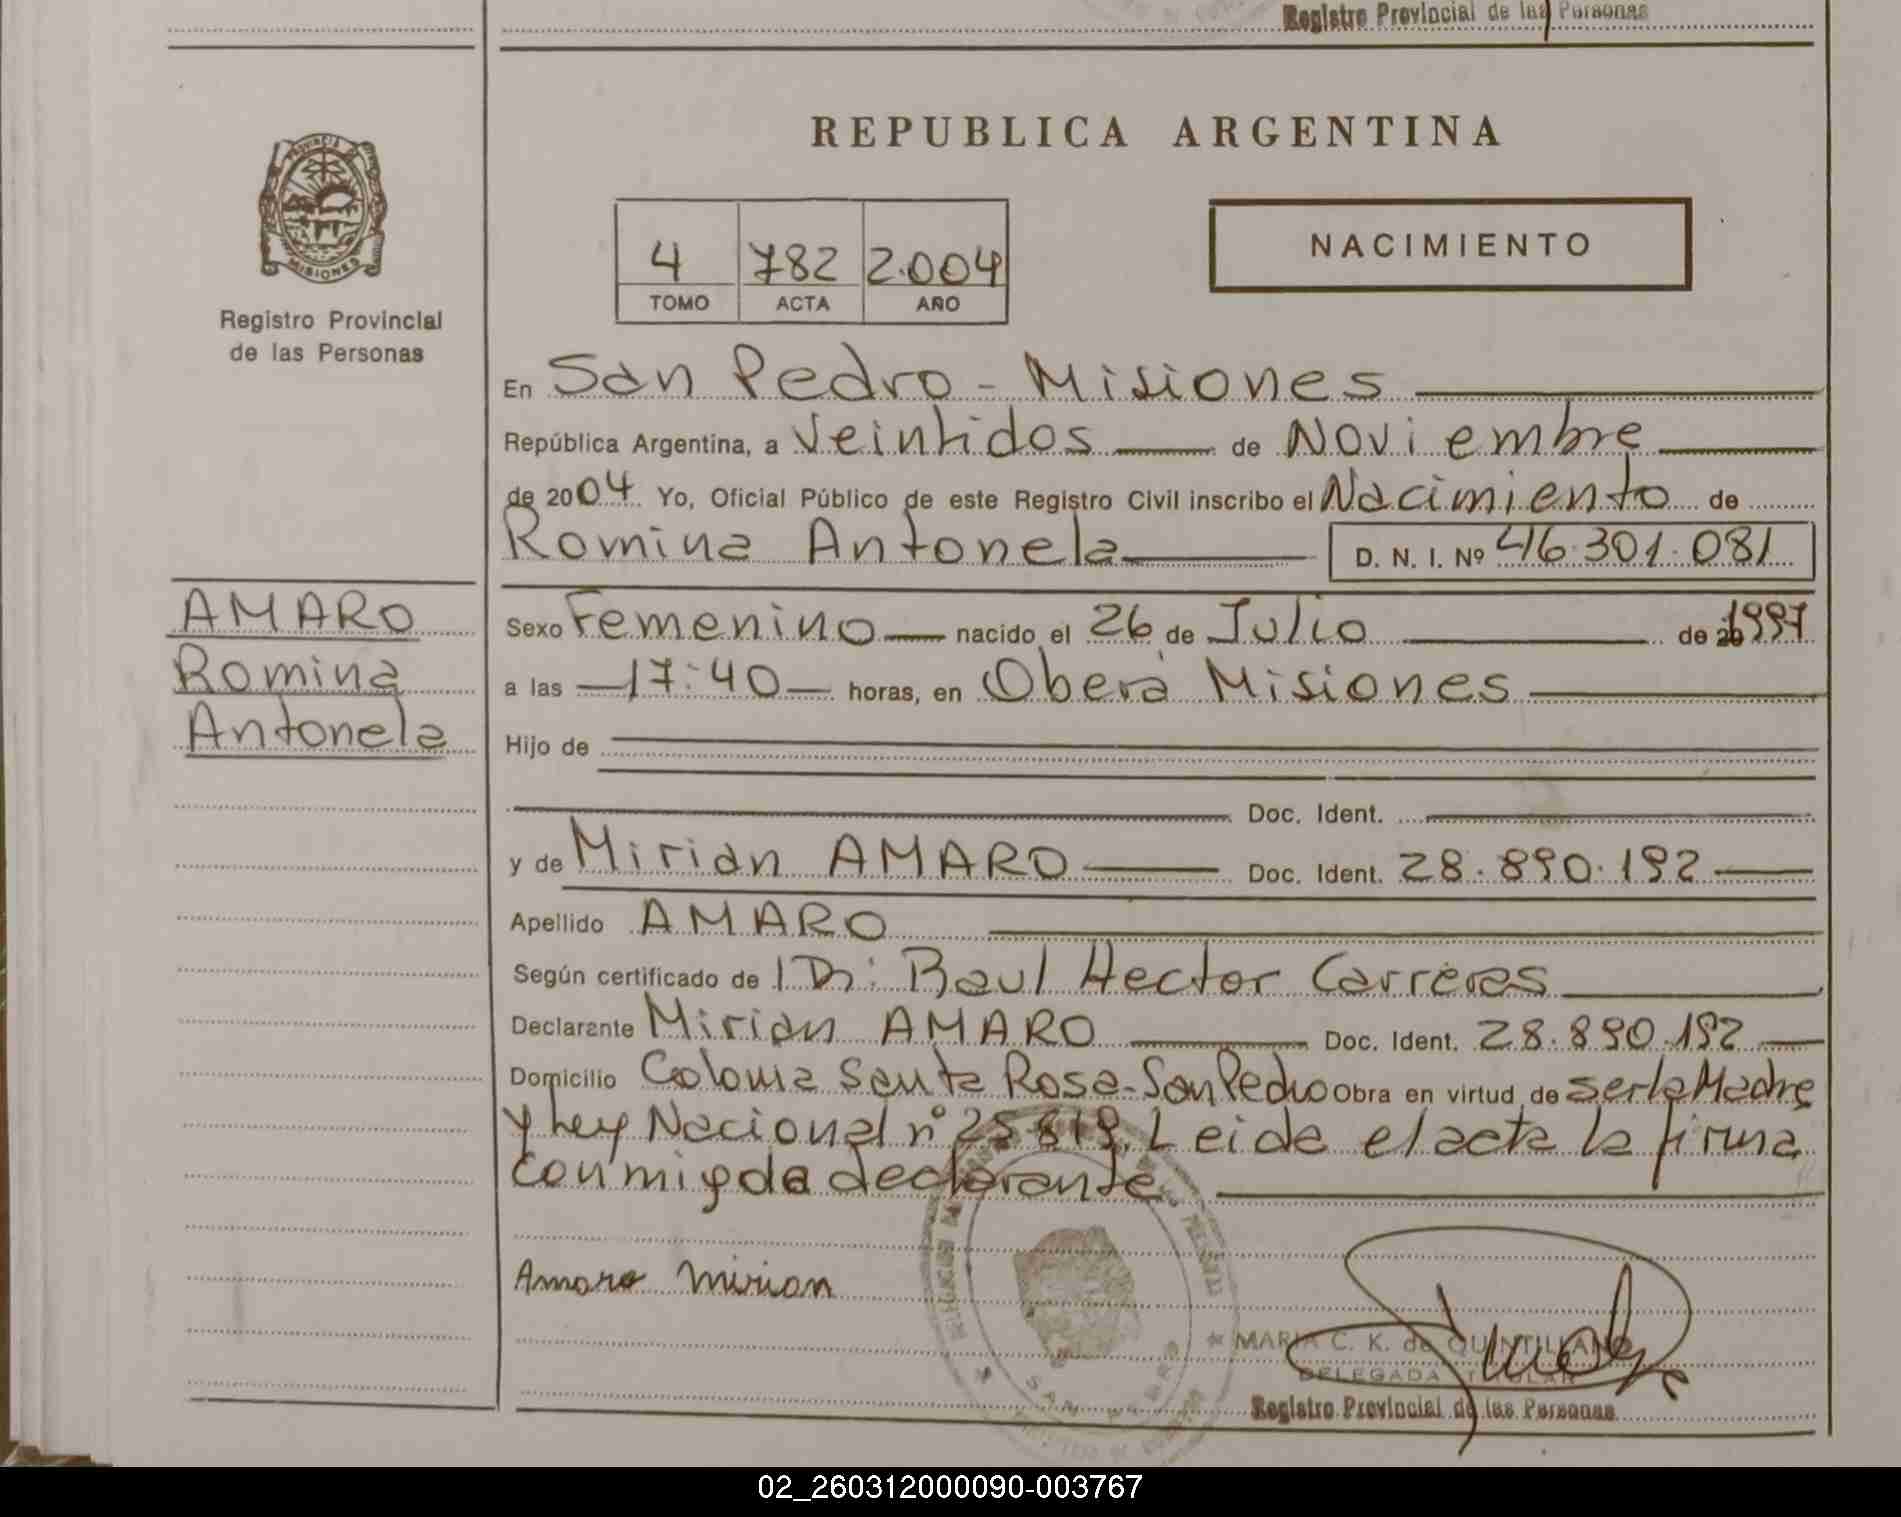 Registro Provincial de las Personas
REPUBLICA ARGENTINA
PROVINCIA DE
MISIONES
Registro Provincial
de las Personas
4 782 2.004
TOMO ACTA AÑO
NACIMIENTO
En San Pedro - Misiones
República Argentina, a Veintidos de Noviembre
de 2004 Yo, Oficial Público de este Registro Civil inscribo el Nacimiento de
Romina Antonela D. N. I. Nº 46.301.081
AMARO
Romina
Antonela
Sexo Femenino nacido el 26 de Julio de 1997
a las 17:40 horas, en Oberá Misiones
Hijo de
Doc. Ident.
y de Mirian AMARO Doc. Ident. 28.890.192
Apellido AMARO
Según certificado de Dr: Raul Hector Carreras
Declarante Mirian AMARO Doc. Ident. 28.890.192
Domicilio Colonia Santa Rosa - San Pedro Obra en virtud de ser la Madre
y Ley Nacional nº 25.819. Leida el acta la firma
conmigo da declarante
Amaro Mirian
MARIA C. K. de QUINTILLANO
DELEGADA TITULAR
Registro Provincial de las Personas
SAN PEDRO
02_260312000090-003767